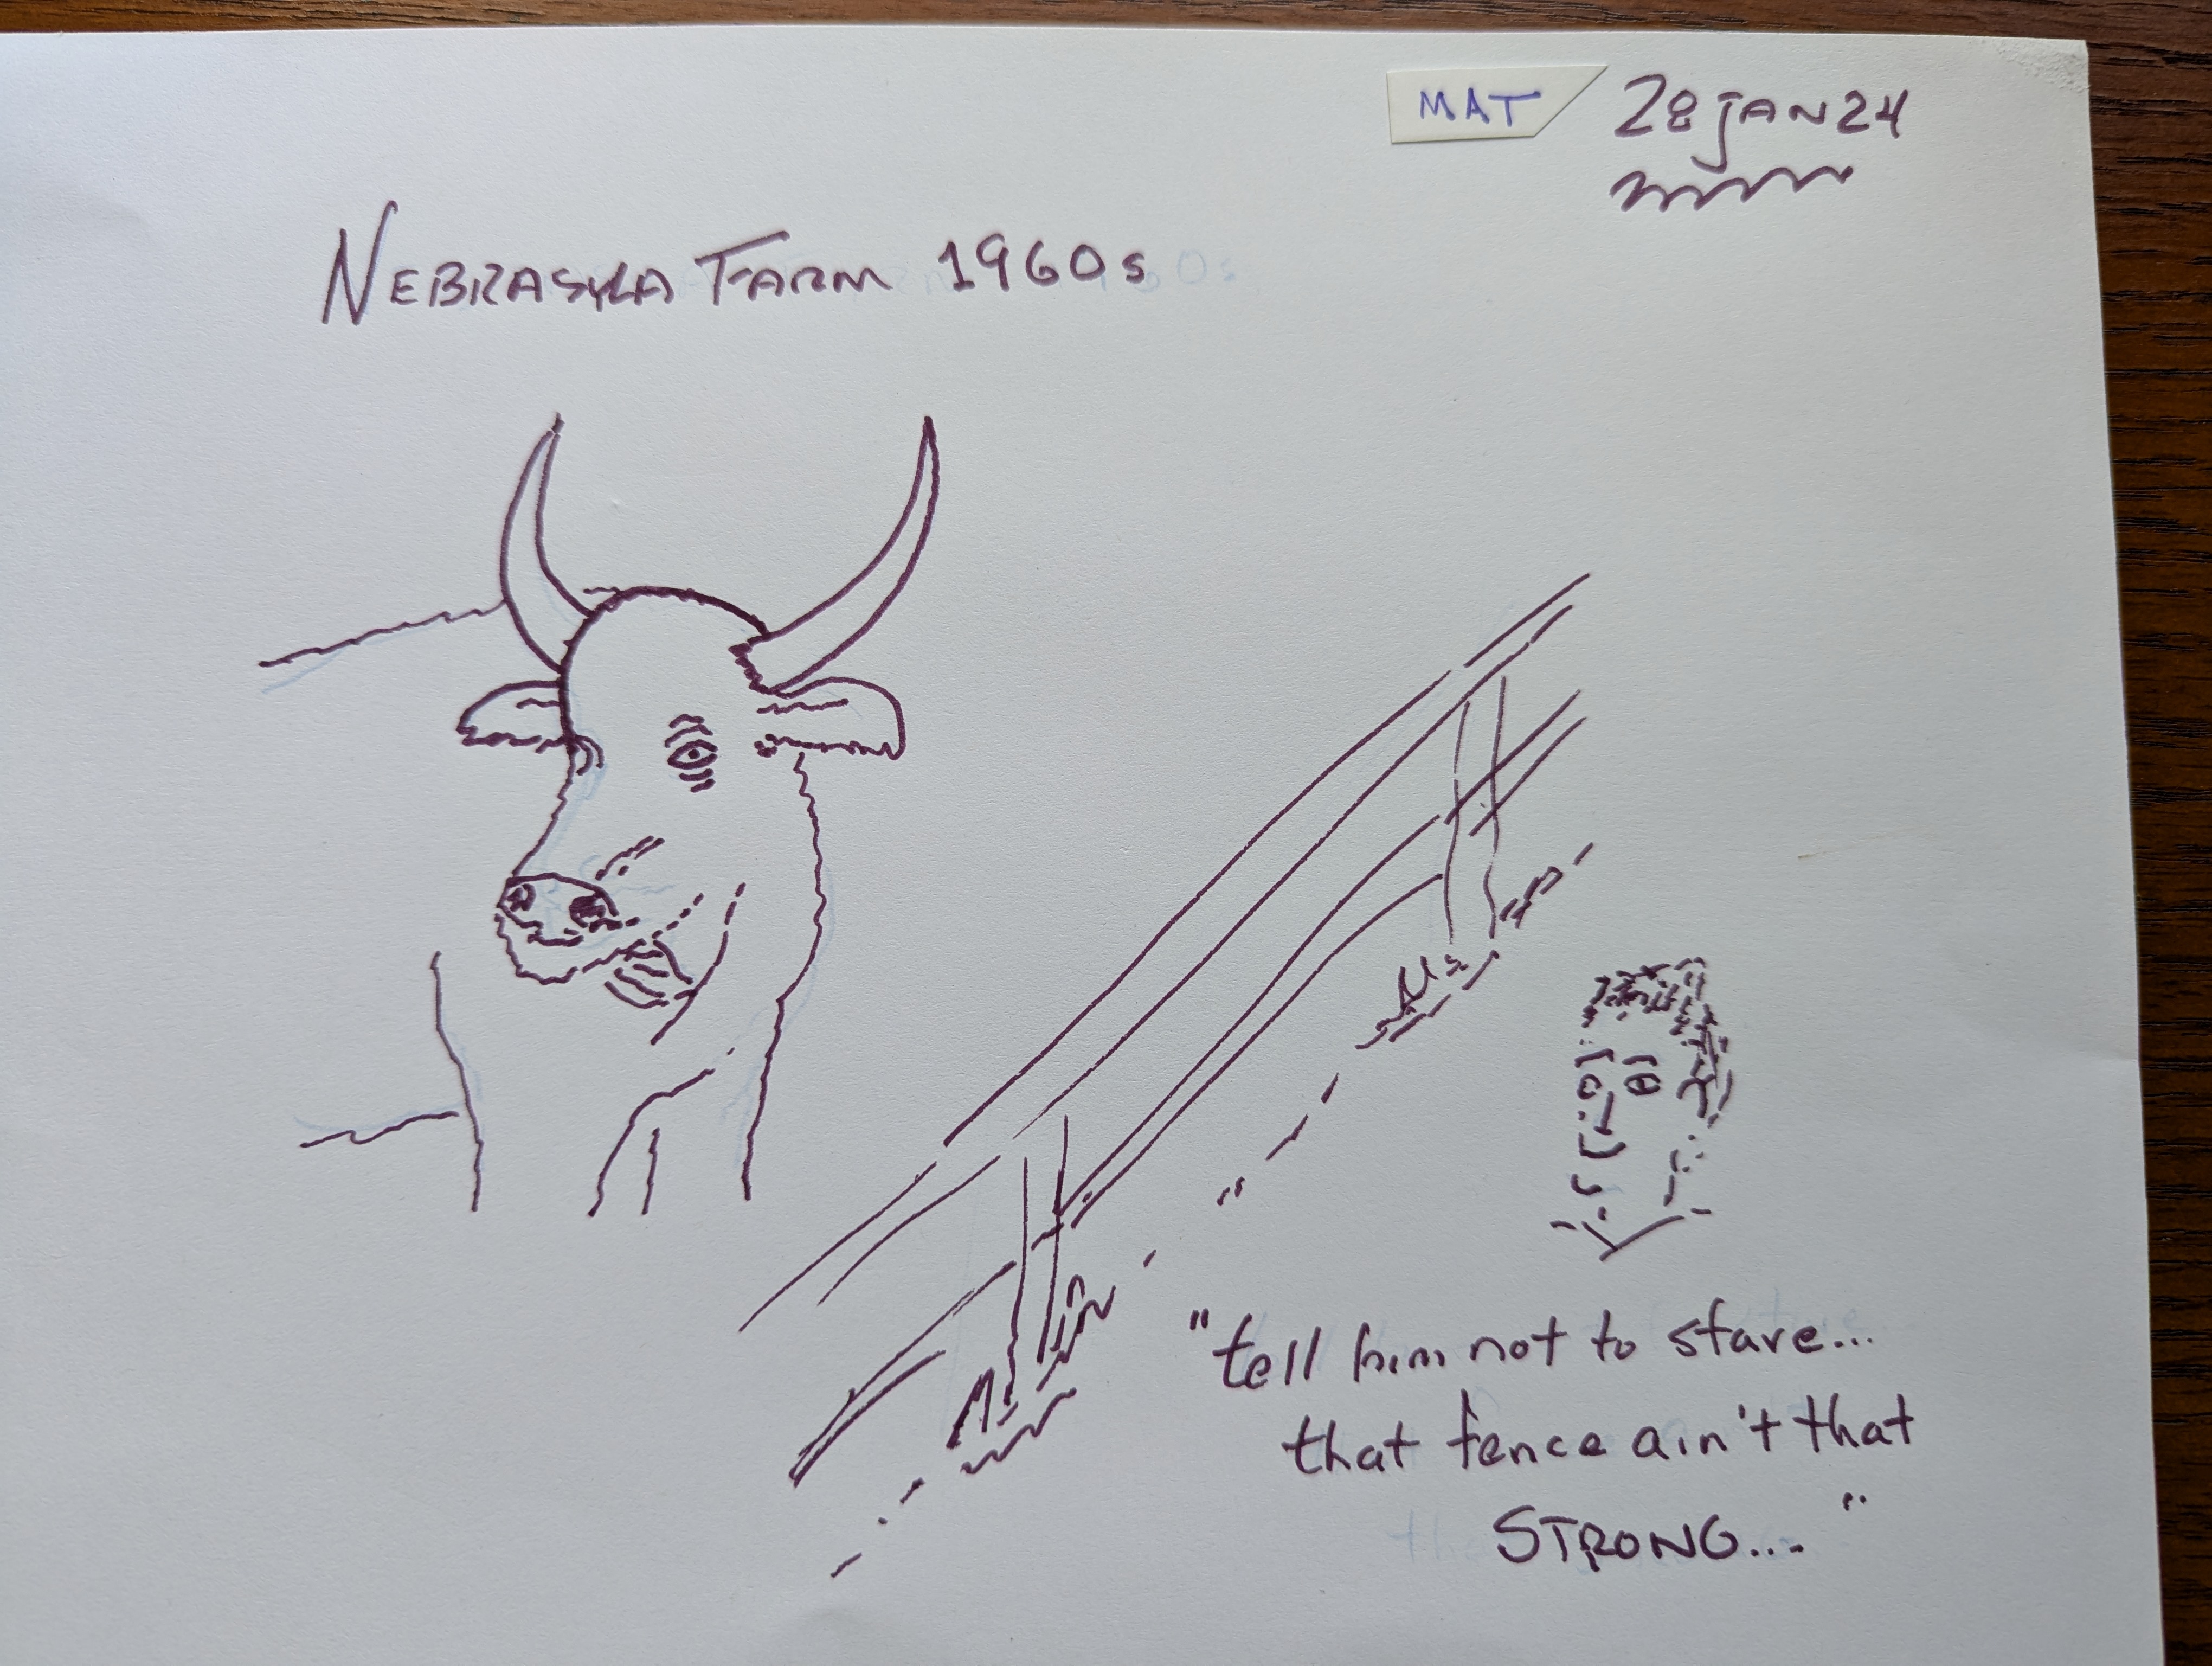 MAT 28 JAN 24
NEBRASKA FARM 1960s
"tell him not to stare...
that fence ain't that
STRONG..."